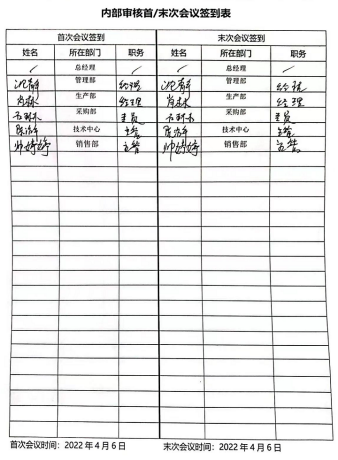 内部审核首/末次会议签到表
首次会议签到 末次会议签到
姓名 所在部门 职务 姓名 所在部门 职务
总经理 总经理
沈静 管理部 经理 沈静 管理部 经理
肖林 生产部 经理 肖林 生产部 经理
采购部 采购部
技术中心 主管 技术中心 主管
帅婷婷 销售部 主管 帅婷婷 销售部 主管
首次会议时间：2022 年 4 月 6 日 末次会议时间：2022 年 4 月 6 日